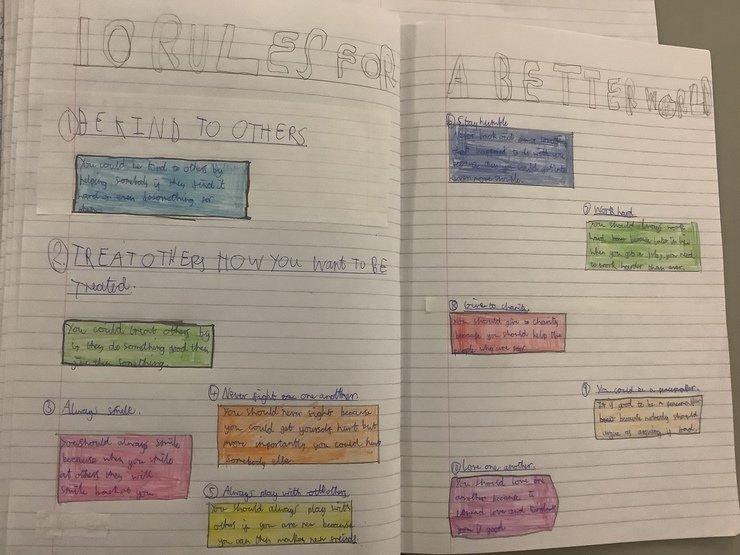 10 RULES FOR
A BETTER WORLD
① BE KIND TO OTHERS.
You could be kind to others by
helping somebody if they find it
hard or even something for
them.
② TREAT OTHERS HOW YOU Want TO BE
Treated.
You could treat others by
if they do something good then
something.
③ Always smile.
You should always smile
because when you smile
at others they will
smile back at you
④ Never fight one another
You should never fight because
you could get yourself hurt but
more importantly you could hurt
somebody else.
⑤ Always play with others
You should always play with
others if you are new because
you can then make new friends
⑥ Stay humble
Never back out
happened to do with
you could get into
even more trouble.
⑦ Work hard
You should always work
hard because later in life
when you get a job, you need
to work harder than ever.
⑧ Give to charity
You should give to charity
because you should help the
people who are poor
⑨ You could be a peacemaker.
It is good to be a peacemaker
because nobody should
argue
⑩ Love one another.
You should love one
another because to
spread love and kindness
good